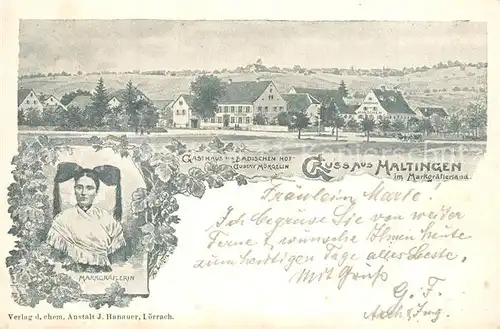 GASTHAUS Z. BADISCHEN HOF
GUSTAV MÖRGELIN
GRUSS AUS HALTINGEN
im Markgräflerland.
Fräulein Marte.
Ich begrüsse Sie von weiter
Ferne & wünsche Ihnen heute
zum heutigen Tage alles Beste.
Mit Gruß
G. F.
MARKGRÄFLERIN
Verlag d. chem. Anstalt J. Hanauer, Lörrach.